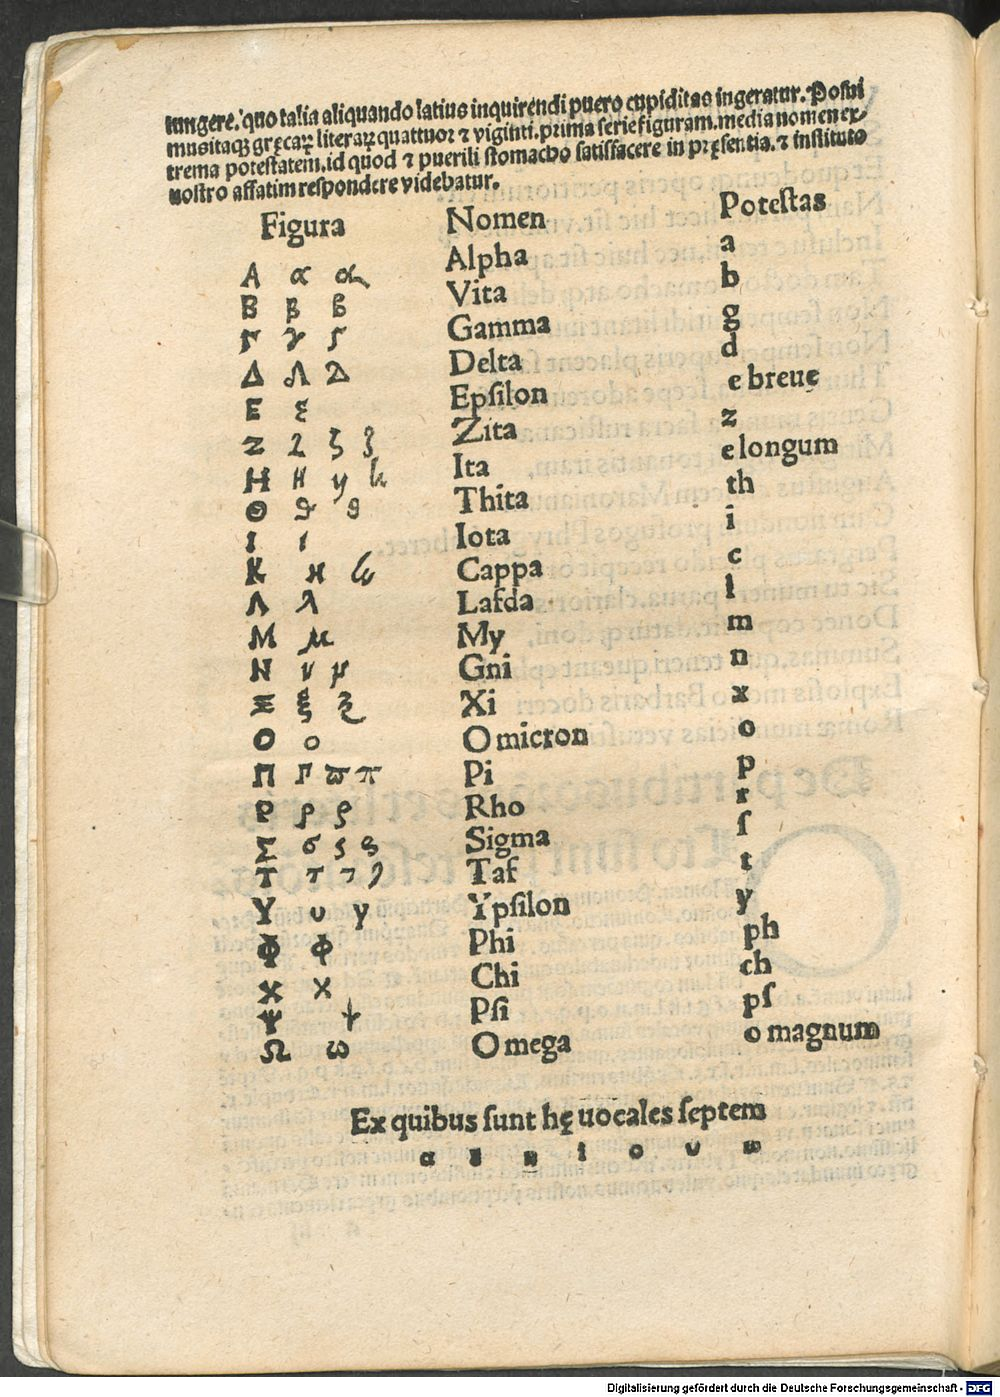 iungere. quo talia aliquando latius inquirendi puero cupiditas ingeratur. Posui
musitaqꝫ gręcaꝝ literaꝝ quattuor ⁊ viginti. prima serie figuram. media nomen ex-
trema potestatem. id quod ⁊ puerili stomacho satisfacere in pręsentia. ⁊ instituto
nostro affatim respondere videbatur.
Figura Nomen Potestas
Α α α Alpha a
Β β β Vita b
Γ γ Gamma g
Δ Delta d
Ε ε Epſilon e breue
Ζ ζ Zita z
Η Ita e longum
Θ ϑ Thita th
Ι ι Iota i
Κ Cappa c
Λ λ Lafda l
Μ μ My m
Ν ν Gni n
Ξ ξ Xi x
Ο ο Omicron o
Π ϖ π Pi p
Ρ ρ Rho r
Σ σ ς Sigma ſ
Τ τ Taf t
Υ υ Ypſilon y
Φ Φ Phi ph
Χ χ Chi ch
Ψ ψ Pſi pſ
Ω ω Omega o magnum
Ex quibus ſunt hę uocales ſeptem
α ε η ι ο υ ω
Digitalisierung gefördert durch die Deutsche Forschungsgemeinschaft - DFG